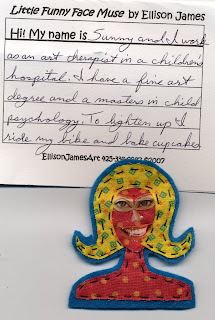 Little Funny Face Muse by Ellison James
Hi! My name is Sunny and I work
as an art therapist in a children's
hospital. I have a fine art
degree and a masters in child
psychology. To lighten up I
ride my bike and bake cupcakes
EllisonJamesArt ©2007